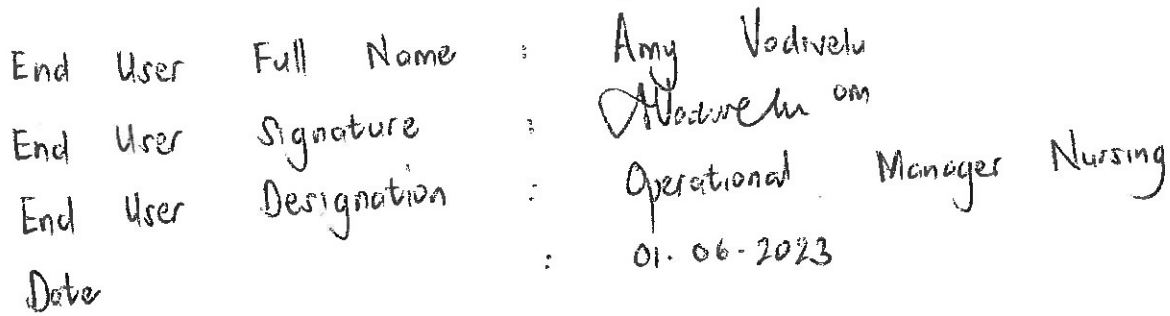 End User Full Name : Amy Vadivelu
End User Signature : AVadivelu om
End User Designation : Operational Manager Nursing
Date : 01.06.2023